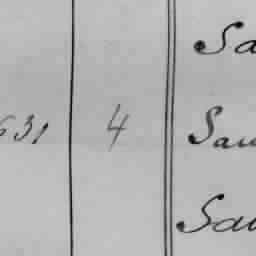 Sa
631 4 Sau
Sau